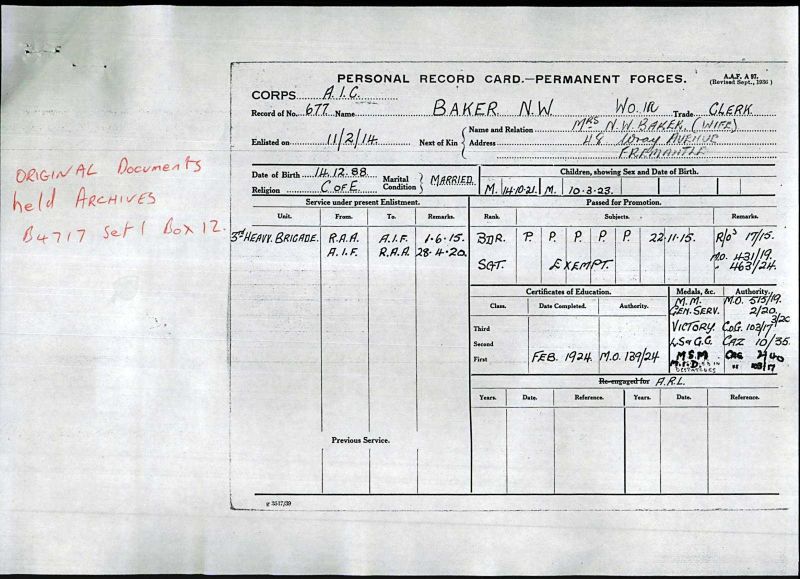 PERSONAL RECORD CARD.—PERMANENT FORCES.
A.A.F. A 97.
(Revised Sept., 1936)
CORPS A.I.C.
Record of No. 677 Name BAKER N.W. WO. Trade CLERK
Enlisted on 11/2/14
Next of Kin
Name and Relation MRS N.W. BAKER. (WIFE)
Address 48 Wray AVENUE
FREMANTLE
ORIGINAL Documents
held ARCHIVES
B4717 Set 1 Box 12.
Date of Birth 14.12.88
Religion C of E.
Marital Condition MARRIED
Children, showing Sex and Date of Birth.
M. 14.10.21. M. 10.3.23.
Service under present Enlistment.
Unit. From. To. Remarks.
3rd HEAVY. BRIGADE. R.A.A. A.I.F. 1.6.15.
A.I.F. R.A.A. 28.4.20.
Passed for Promotion.
Rank. Subjects. Remarks.
BDR. P. P. P. P. P. 22.11.15. R/Os 17/15.
SGT. EXEMPT. M.O. 431/19.
" 463/24.
Certificates of Education.
Class. Date Completed. Authority.
Third
Second
First FEB. 1924. M.O. 139/24
Medals, &c. Authority.
M.M. M.O. 515/19.
GEN. SERV. 2/20.
VICTORY CoG. 102/17 3/20
LS & G.C. GAZ 10/35.
M S M 2/40
M.I.D. " 103/17
DESPATCHES
Re-engaged for A.R.L.
Years. Date. Reference. Years. Date. Reference.
Previous Service.
g 3517/39